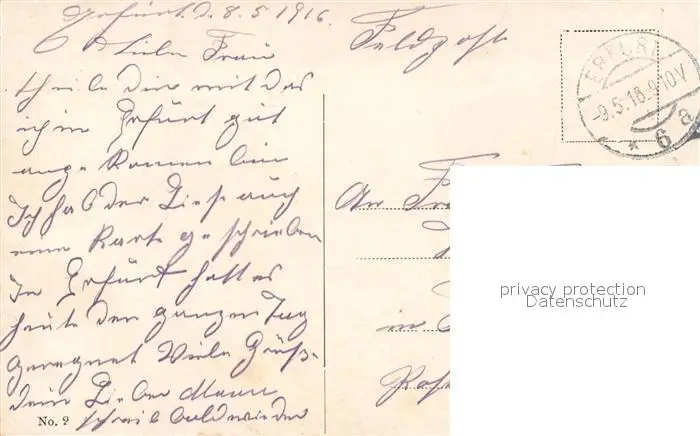 Erfurt. d. 8. 5 1916.
Liebe Frau
theile dir mit das
ich in Erfurt gut
ange komen bin
Ich hab der Liese auch
eine Karte geschrieben
In Erfurt hatt es
heute den ganzen Tag
geregnet Viele Grüß.
dein Lieber Mann
schreib bald wieder
No. 2
Feldpost
ERFURT
-9.5.16.9-10V
* 6 a
An
in
privacy protection
Datenschutz